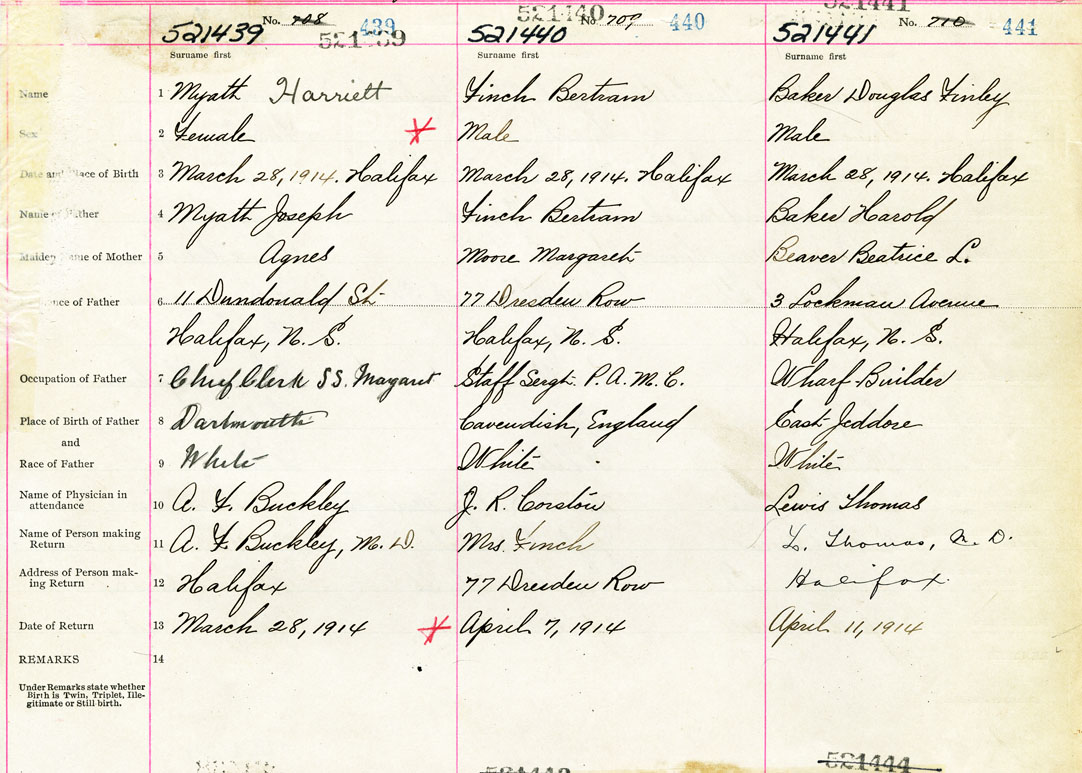 521440 521441
No. 708 439 No. 709 440 No. 710 441
521439 521440 521441
521439
Surname first Surname first Surname first
Name 1 Myath Harriett Finch Bertram Baker Douglas Finley
Sex 2 Female Male Male
Date and Place of Birth 3 March 28, 1914. Halifax March 28, 1914. Halifax March 28, 1914. Halifax
Name of Father 4 Myath Joseph Finch Bertram Baker Harold
Maiden Name of Mother 5 Agnes Moore Margaret Beaver Beatrice L.
Residence of Father 6 11 Dundonald St. 77 Dresden Row 3 Lockman Avenue
Halifax, N. S. Halifax, N. S. Halifax, N. S.
Occupation of Father 7 Chief Clerk SS. Margaret Staff Sergt. P. A. M. C. Wharf Builder
Place of Birth of Father 8 Dartmouth Cavendish, England East Jeddore
and
Race of Father 9 White White White
Name of Physician in
attendance 10 A. F. Buckley J. R. Corston Lewis Thomas
Name of Person making
Return 11 A. F. Buckley, M. D. Mrs. Finch L. Thomas, M. D.
Address of Person mak-
ing Return 12 Halifax 77 Dresden Row Halifax
Date of Return 13 March 28, 1914 April 7, 1914 April 11, 1914
REMARKS 14
Under Remarks state whether
Birth is Twin, Triplet, Ille-
gitimate or Still-birth.
521444